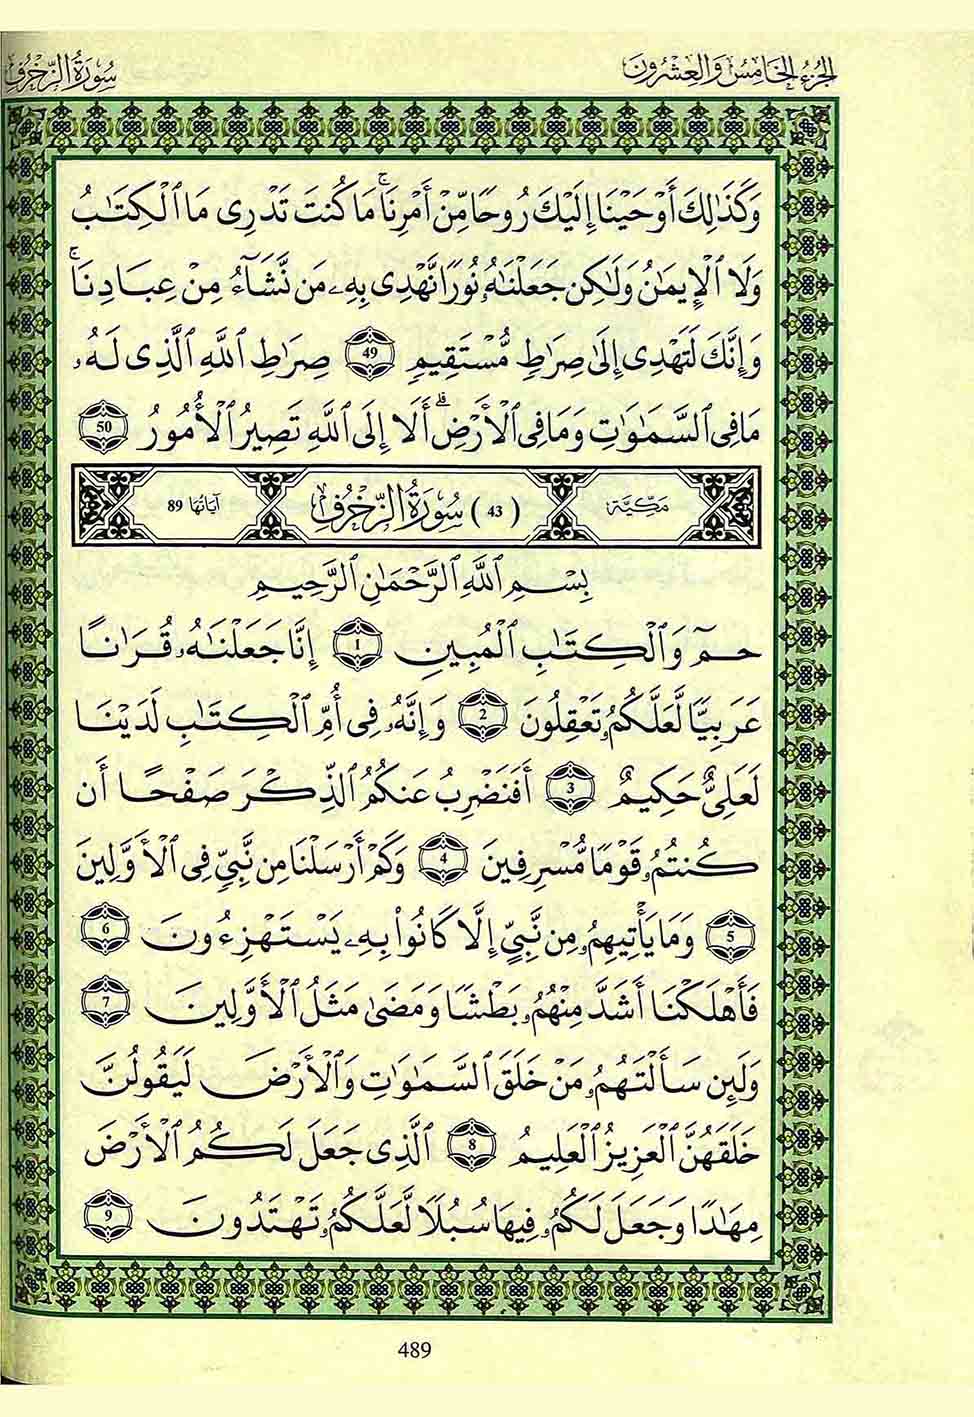 الجزء الخامس والعشرون
سورة الزخرف
وَكَذَٰلِكَ أَوْحَيْنَا إِلَيْكَ رُوحًا مِّنْ أَمْرِنَاۚ مَا كُنتَ تَدْرِى مَا اَ۬لْكِتَٰبُ
وَلَا اَ۬لْإِيمَٰنُ وَلَٰكِن جَعَلْنَٰهُۥ نُورًا نَّهْدِى بِهِۦ مَن نَّشَآءُ مِنْ عِبَادِنَاۚ
وَإِنَّكَ لَتَهْدِى إِلَىٰ صِرَٰطٍ مُّسْتَقِيمٍ 49 صِرَٰطِ اِ۬للَّهِ اِ۬لَّذِى لَهُۥ
مَا فِى اِ۬لسَّمَٰوَٰتِ وَمَا فِى اِ۬لْأَرْضِۗ أَلَا إِلَى اَ۬للَّهِ تَصِيرُ اُ۬لْأُمُورُ 50
مكية (43) سورة الزخرف آياتها 89
بِسْمِ اِ۬للَّهِ اِ۬لرَّحْمَٰنِ اِ۬لرَّحِيمِ
حمٓ وَالْكِتَٰبِ اِ۬لْمُبِينِ 1 إِنَّا جَعَلْنَٰهُۥ قُرَٰنًا
عَرَبِيًّا لَّعَلَّكُمُۥ تَعْقِلُونَ 2 وَإِنَّهُۥ فِى أُمِّ اِ۬لْكِتَٰبِ لَدَيْنَا
لَعَلِىٌّ حَكِيمٌ 3 أَفَنَضْرِبُ عَنكُمُ اُ۬لذِّكْرَ صَفْحًا أَن
كُنتُمُۥ قَوْمًا مُّسْرِفِينَ 4 وَكَمْ أَرْسَلْنَا مِن نَّبِيٍّ فِى اِ۬لْأَوَّلِينَ
5 وَمَا يَأْتِيهِمُۥ مِن نَّبِيٍّ إِلَّا كَانُواْ بِهِۦ يَسْتَهْزِءُونَ 6
فَأَهْلَكْنَا أَشَدَّ مِنْهُمُۥ بَطْشًا وَمَضَىٰ مَثَلُ اُ۬لْأَوَّلِينَ 7
وَلَئِن سَأَلْتَهُمُۥ مَنْ خَلَقَ اَ۬لسَّمَٰوَٰتِ وَالْأَرْضَ لَيَقُولُنَّ
خَلَقَهُنَّ اَ۬لْعَزِيزُ اُ۬لْعَلِيمُ 8 اُ۬لَّذِى جَعَلَ لَكُمُ اُ۬لْأَرْضَ
مِهَٰدًا وَجَعَلَ لَكُمُۥ فِيهَا سُبُلًا لَّعَلَّكُمُۥ تَهْتَدُونَ 9
489